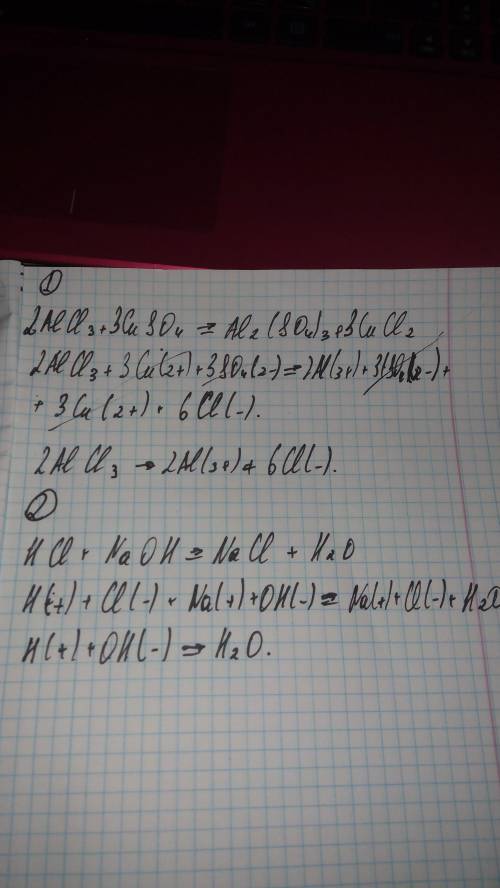 1
2AlCl3+3CuSO4 = Al2(SO4)3+3CuCl2
2AlCl3+3Cu(2+)+3SO4(2-)=2Al(3+)+3SO4(2-)+
+3Cu(2+)+6Cl(-).
2AlCl3→2Al(3+)+6Cl(-).
2
HCl+NaOH=NaCl+H2O
H(+)+Cl(-)+Na(+)+OH(-)=Na(+)+Cl(-)+H2O
H(+)+OH(-)=H2O.